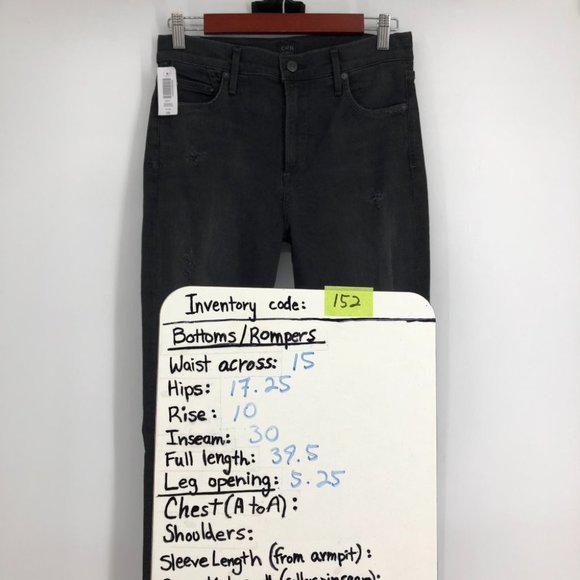 Inventory code: 152
Bottoms/Rompers
Waist across: 15
Hips: 17.25
Rise: 10
Inseam: 30
Full length: 39.5
Leg opening: 5.25
Chest (A to A):
Shoulders:
Sleeve Length (from armpit):